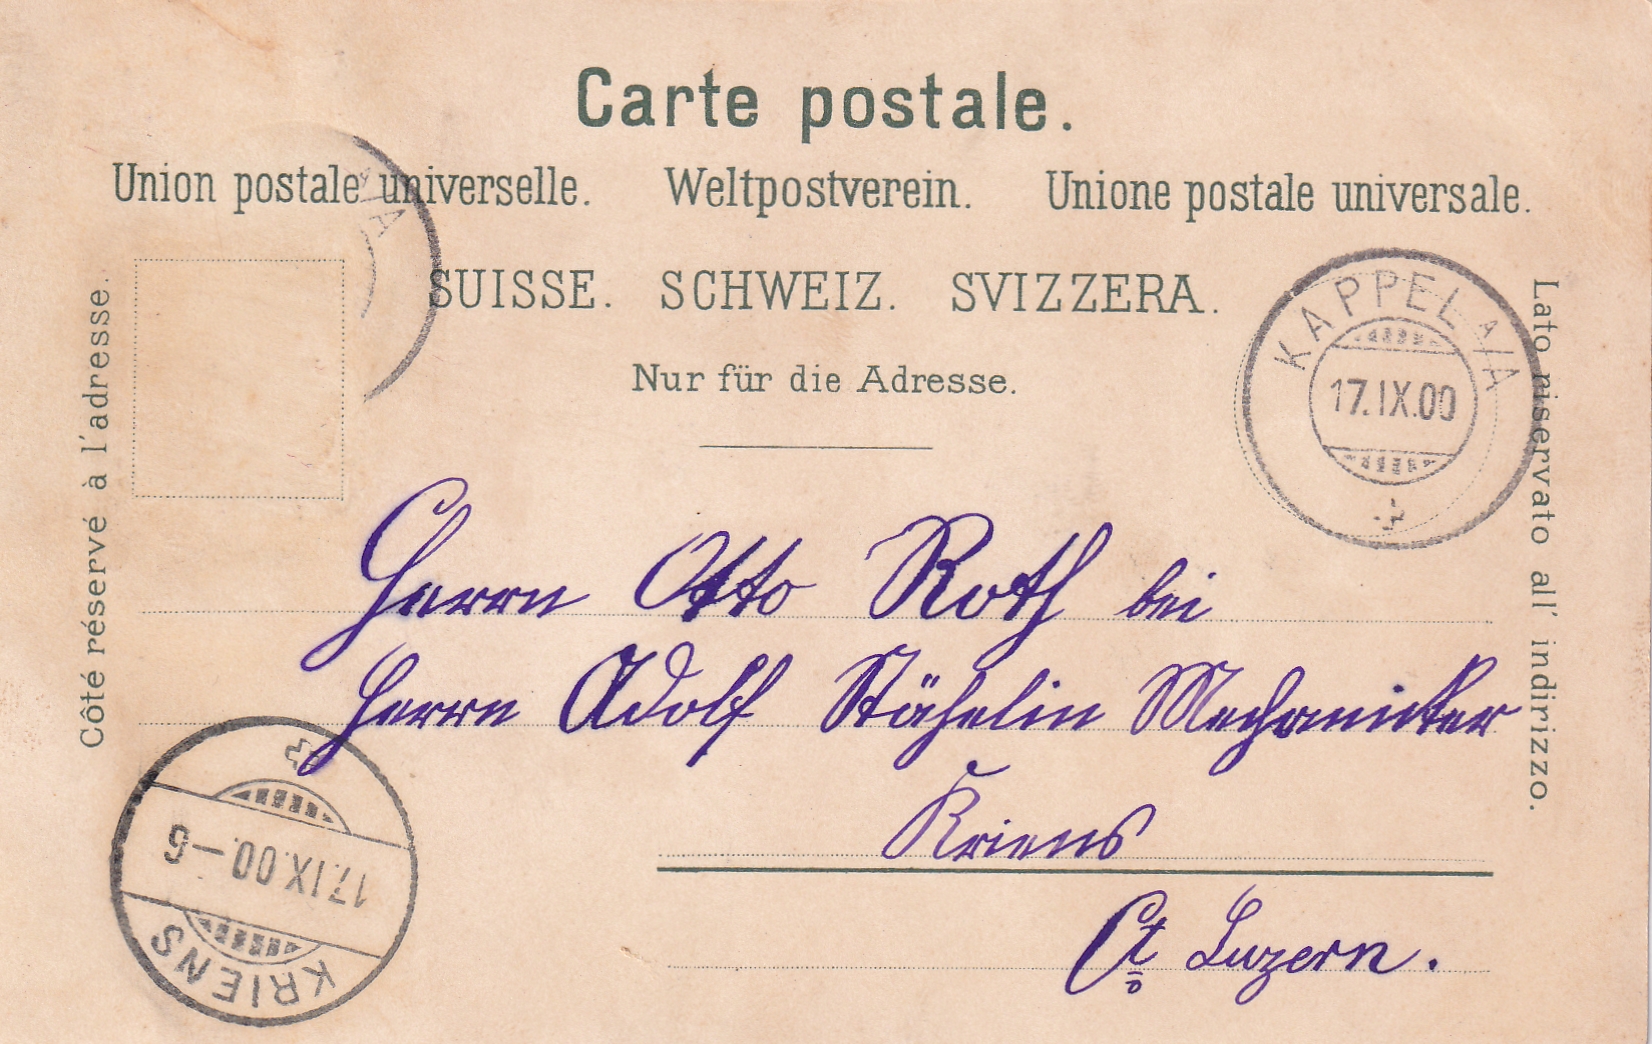 Carte postale.
Union postale universelle. Weltpostverein. Unione postale universale.
SUISSE. SCHWEIZ. SVIZZERA.
Nur für die Adresse.
Côté réservé à l'adresse.
Lato riservato all' indirizzo.
A/A
KAPPEL A/A
17.IX.00
Herrn Otto Roth bei
Herrn Adolf Stähelin Mechaniker
Kriens
Ct. Luzern.
17.IX.00.–6
KRIENS